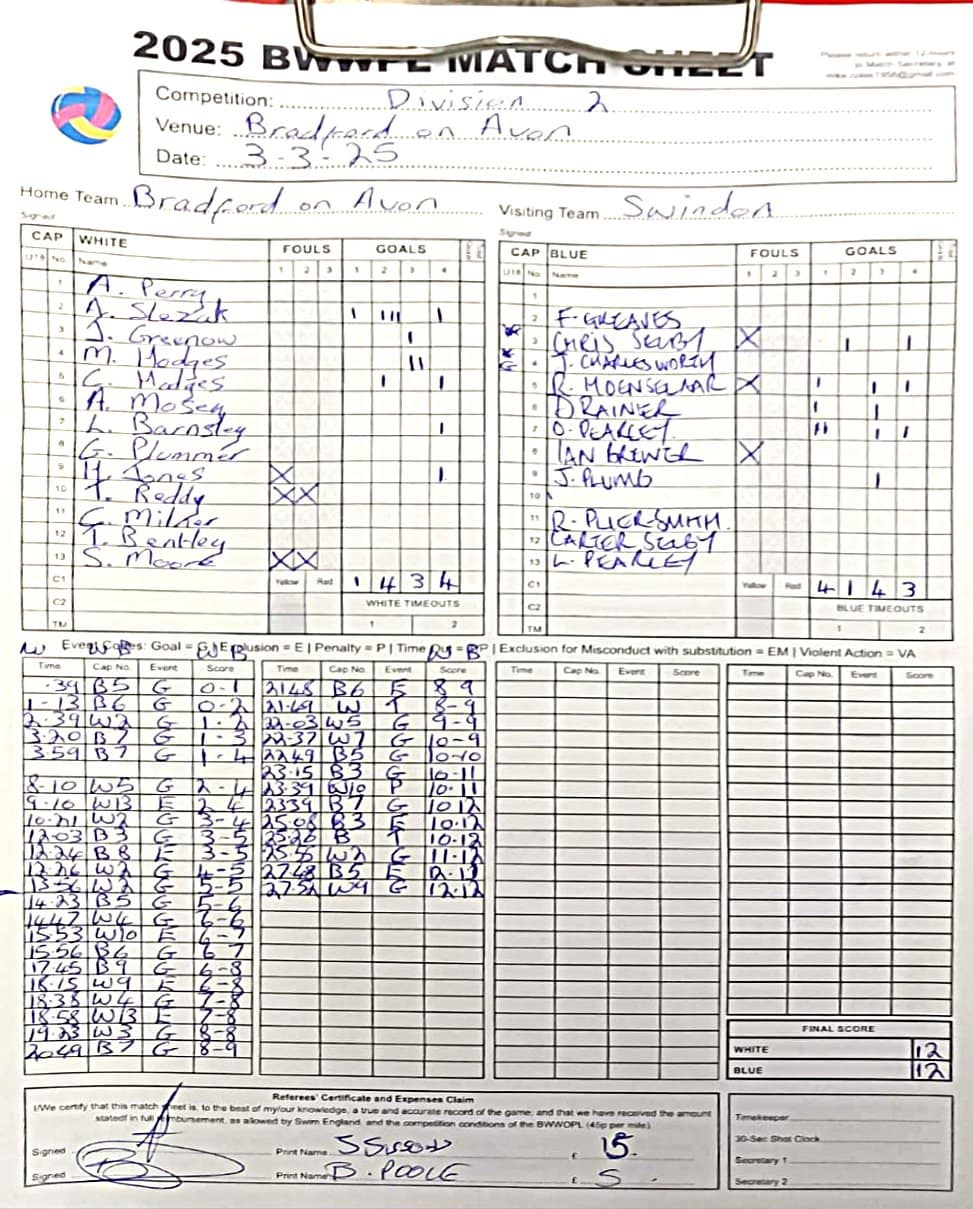 2025 BWWPL MATCH SHEET
Please return within 12 hours
to Match Secretary at
Competition: Division 2
Venue: Bradford on Avon
Date: 3-3-25
Home Team Bradford on Avon
Visiting Team Swindon
Signed
Signed
CAP WHITE FOULS GOALS
U18 No. Name 1 2 3 1 2 3 4
1 A. Perry
2 A. Slezak I III I
3 J. Greenow I
4 M. Hodges II
5 C. Hodges I I
6 A. Mosey
7 L. Barnsley I
8 G. Plummer
9 H. Jones X I
10 T. Reddy XX
11 C. Milner
12 T. Bentley
13 S. Moore XX
C1 Yellow Red 1 4 3 4
C2 WHITE TIMEOUTS
TM 1 2
CAP BLUE FOULS GOALS
U18 No. Name 1 2 3 1 2 3 4
1
2 F. GREAVES
3 CHRIS SELBY X I I
G 4 J. CHARLESWORTH
5 R. MOENSELAAR X I I I
6 D RAINER I I
7 O. PEARLEY. II I I
8 IAN BREWER X
9 J. PLUMB I
10
11 R. PLIERSMITH.
12 CARTER SELBY
13 L. PEARLEY
C1 Yellow Red 4 1 4 3
C2 BLUE TIMEOUTS
TM 1 2
Event Codes: Goal = G | Exclusion = E | Penalty = P | Time Out = TP | Exclusion for Misconduct with substitution = EM | Violent Action = VA
W B
W B
Time Cap No. Event Score
.39 B5 G 0-1
1-13 B6 G 0-2
2.39 W2 G 1-2
3.20 B7 G 1-3
3.59 B7 G 1-4
8-10 W5 G 2-4
9-10 W13 E 2 4
10-21 W2 G 3-4
12.03 B3 G 3-5
12.24 B8 E 3-5
12.26 W2 G 4-5
13-56 W2 G 5-5
14.23 B5 G 5-6
1447 W4 G 6-6
15.53 W10 E 6-7
15.56 B6 G 6 7
17.45 B9 G 6-8
18.15 W9 E 6-8
18.38 W4 G 7-8
18.58 W13 E 7-8
19.23 W3 G 8-8
2049 B7 G 8-9
Time Cap No. Event Score
2148 B6 E 8 9
21.49 W T 8-9
22-03 W5 G 9-9
22-37 W7 G 10-9
2249 B5 G 10-10
23.15 B3 G 10-11
23.39 W10 P 10-11
2339 B7 G 10 12
25.08 B3 E 10.12
25.28 B T 10.12
W2 G 11-12
2748 B5 E
W9 G 12.12
Time Cap No. Event Score
Time Cap No. Event Score
FINAL SCORE
WHITE 12
BLUE 12
Referees' Certificate and Expenses Claim
I/We certify that this match sheet is, to the best of my/our knowledge, a true and accurate record of the game; and that we have received the amount
stated in full reimbursement, as allowed by Swim England, and the competition conditions of the BWWOPL (45p per mile)
Signed Print Name £ 15.
Signed Print Name B. POOLE £ 5.
Timekeeper
30-Sec Shot Clock
Secretary 1
Secretary 2